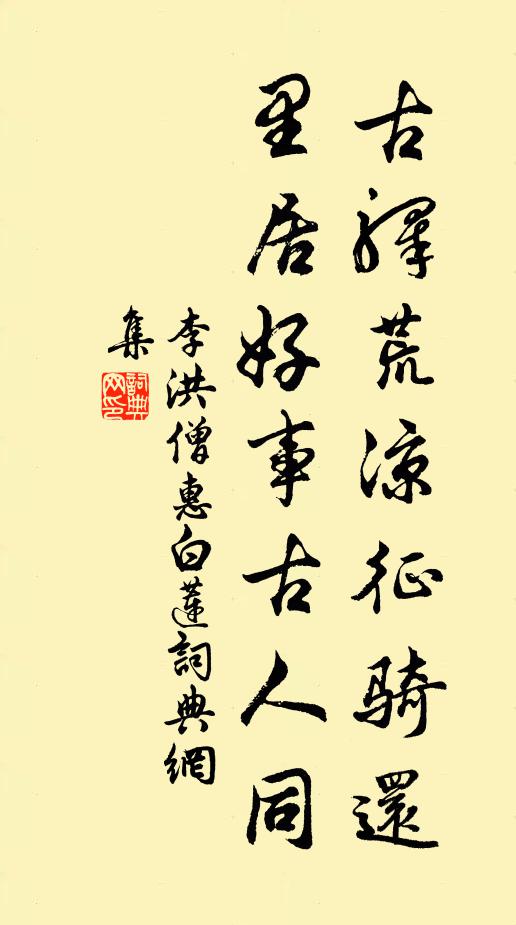 古驛荒涼征騎還
里居好事古人同
李洪僧惠白蓮詞典網
集
詞典
网印